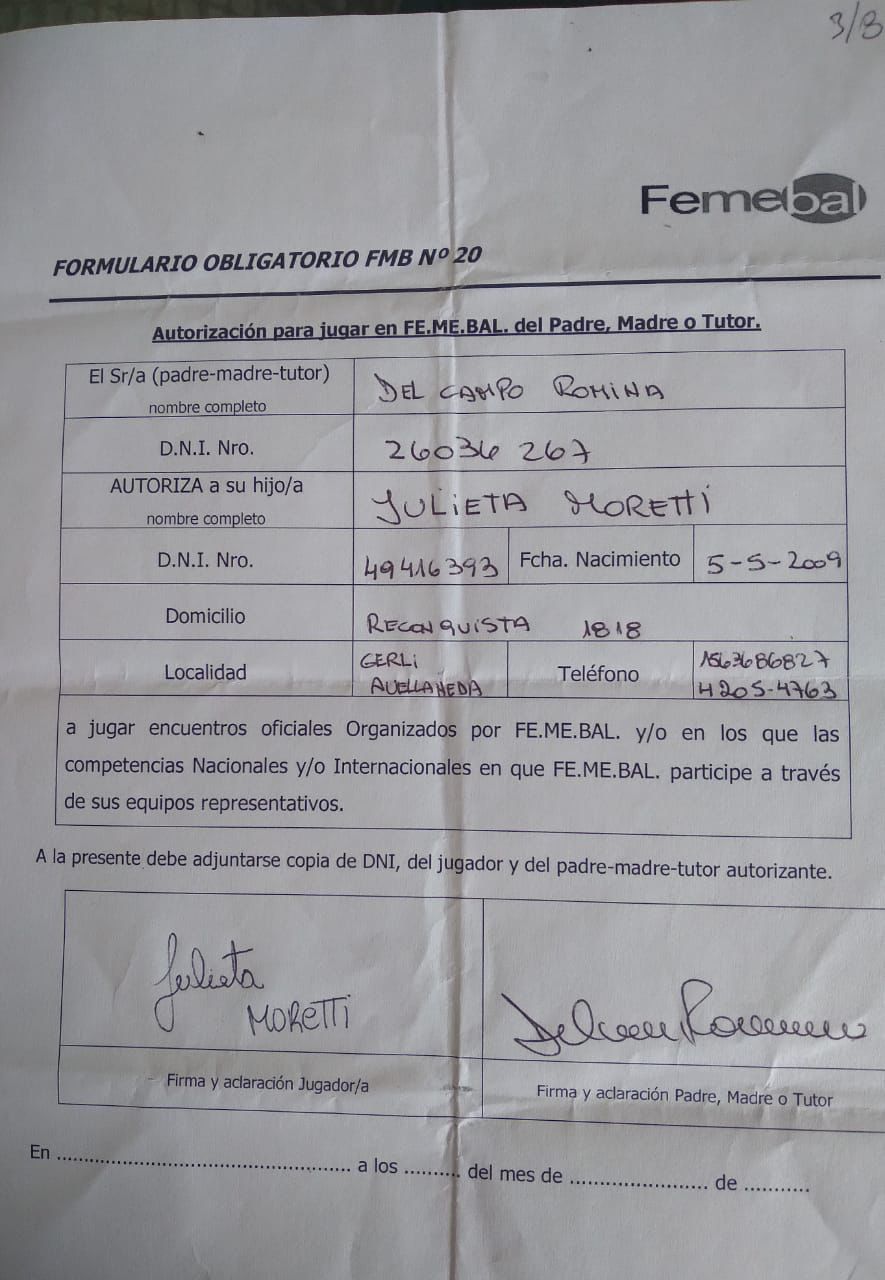 3/8
Femebal
FORMULARIO OBLIGATORIO FMB Nº 20
Autorización para jugar en FE.ME.BAL. del Padre, Madre o Tutor.
El Sr/a (padre-madre-tutor)
nombre completo
DEL CAMPO ROMINA
D.N.I. Nro.
26036 267
AUTORIZA a su hijo/a
nombre completo
JULIETA MORETTI
D.N.I. Nro.
49416393
Fcha. Nacimiento
5-5-2009
Domicilio
RECONQUISTA 1818
Localidad
GERLI
AVELLANEDA
Teléfono
1563686827
4205-4763
a jugar encuentros oficiales Organizados por FE.ME.BAL. y/o en los que las
competencias Nacionales y/o Internacionales en que FE.ME.BAL. participe a través
de sus equipos representativos.
A la presente debe adjuntarse copia de DNI, del jugador y del padre-madre-tutor autorizante.
Julieta
MORETTI
Firma y aclaración Jugador/a
Firma y aclaración Padre, Madre o Tutor
En .................................................. a los .......... del mes de ........................ de ...........